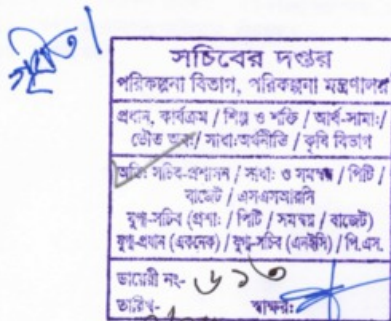 সচিবের দপ্তর
পরিকল্পনা বিভাগ, পরিকল্পনা মন্ত্রণালয়
প্রধান, কার্যক্রম / শিল্প ও শক্তি / আর্থ-সামাঃ/
ভৌত অবঃ/ সাধাঃঅর্থনীতি / কৃষি বিভাগ
অতিঃ সচিব-প্রশাসন / সাধাঃ ও সমন্বয় / পিটি /
বাজেট / এসএসআরসি
যুগ্ম-সচিব (প্রশাঃ / পিটি / সমন্বয় / বাজেট)
যুগ্ম-প্রধান (একনেক) / যুগ্ম-সচিব (এনইসি) / পি.এস.
ডায়েরী নং- ৬১৩
তারিখ- স্বাক্ষরঃ